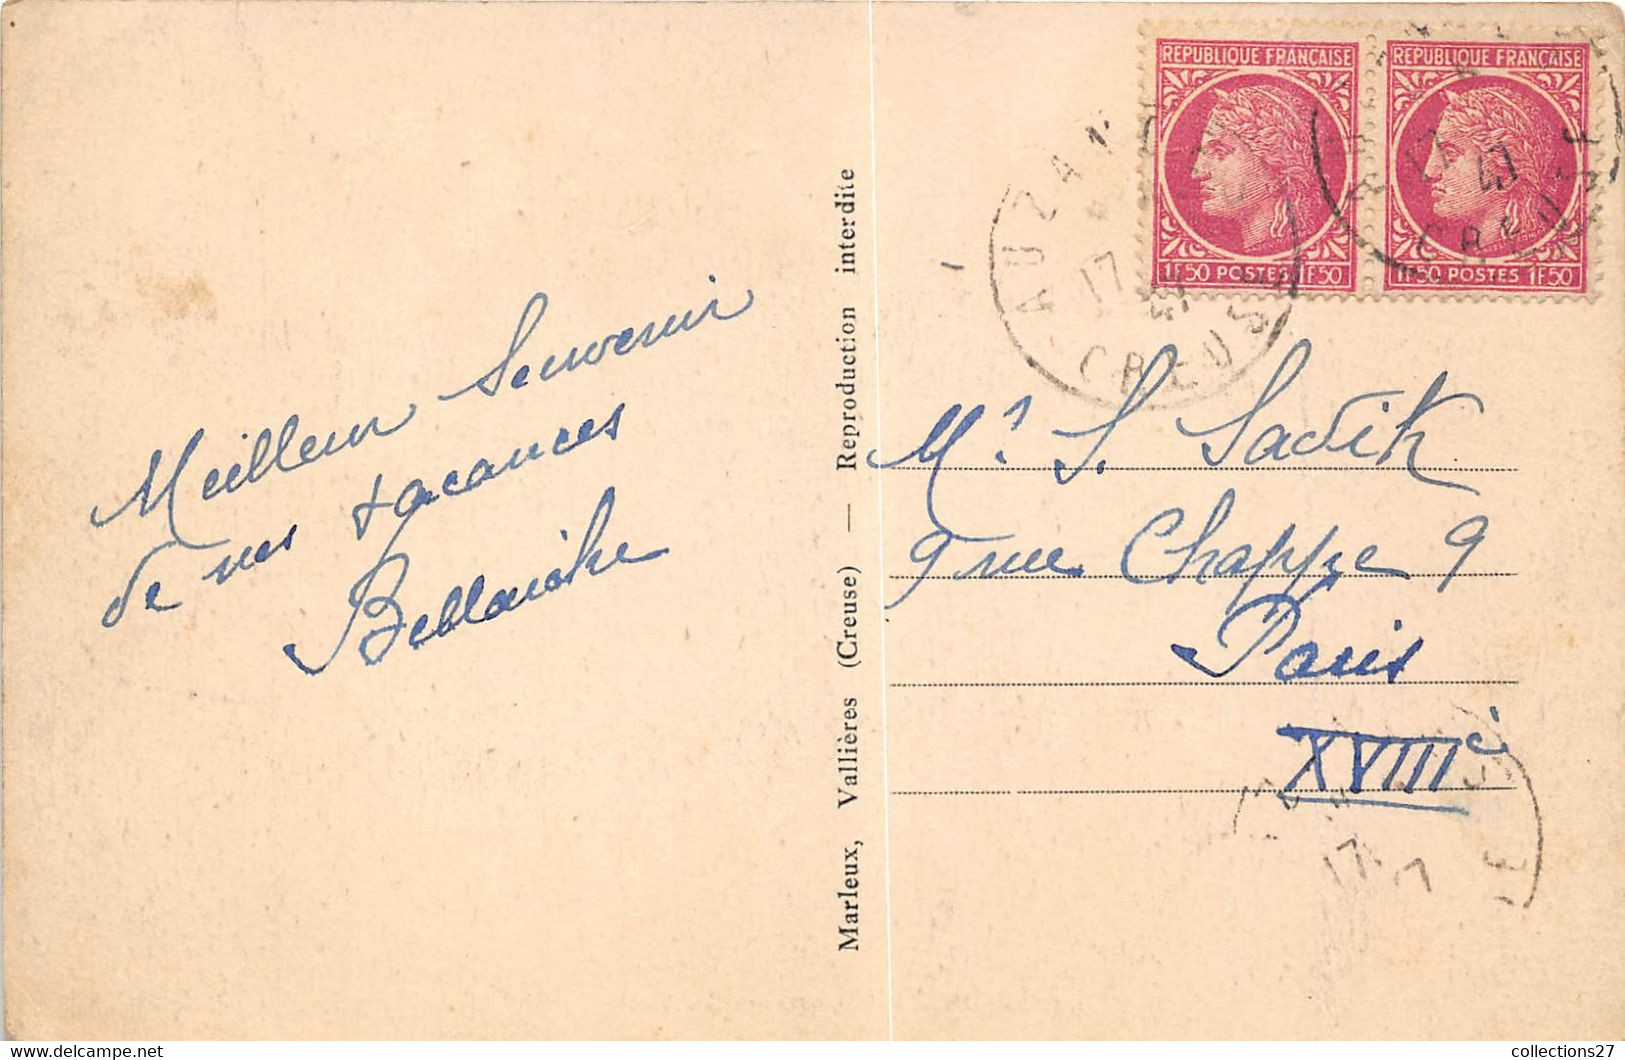 Meilleur Souvenir
de mes vacances
Marleux, Vallières (Creuse) — Reproduction interdite
REPUBLIQUE FRANÇAISE
1F50 POSTES 1F50
REPUBLIQUE FRANÇAISE
1F50 POSTES 1F50
AUZA
17
47
CREUSE
17
47
CREUSE
Mr. S. Sadik
9 rue Chappe 9
Paris
XVIIIè
17
collections27